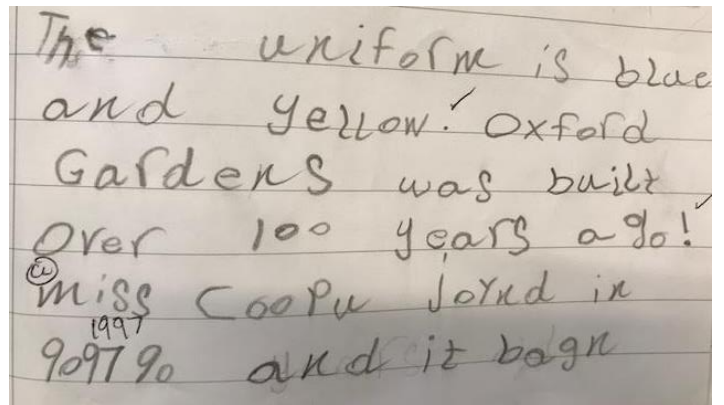 The uniform is blue
and yellow. Oxford
Gardens was built
Over 100 years ago!
miss Coopu Joynd in
1997
909790 and it bagn